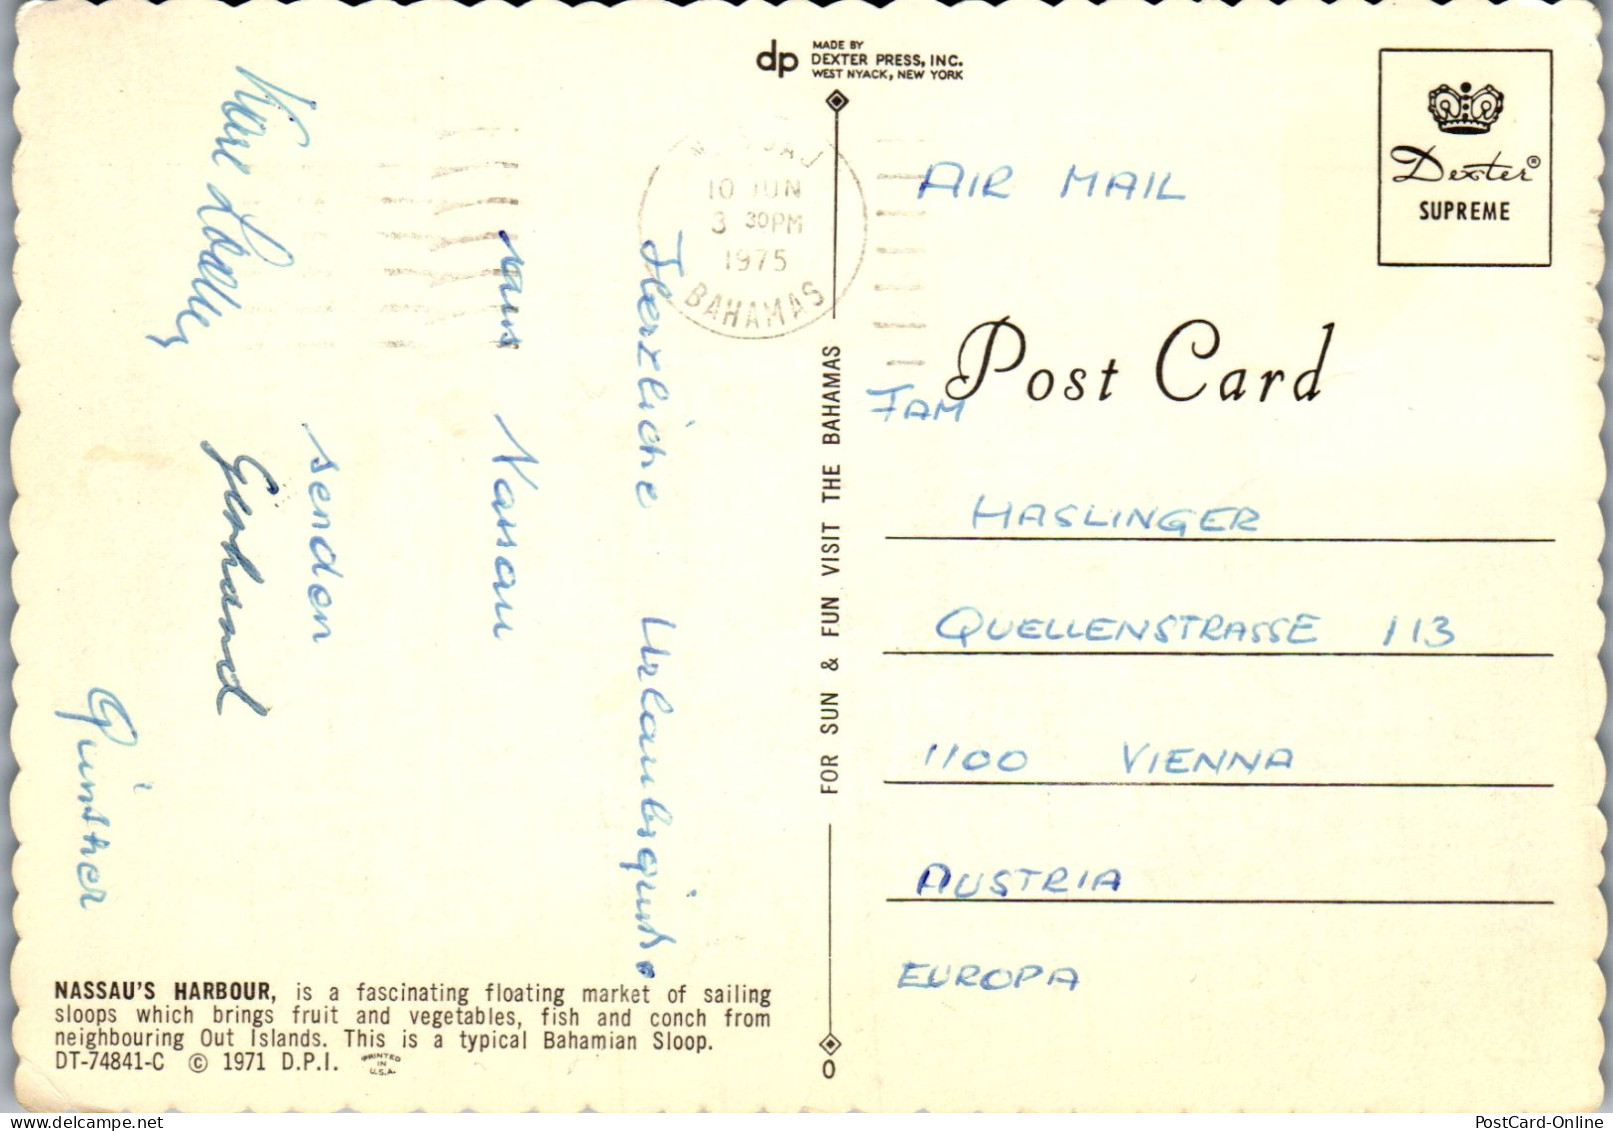 dp MADE BY
DEXTER PRESS, INC.
WEST NYACK, NEW YORK
10 JUN
3 30PM
1975
BAHAMAS
Dexter®
SUPREME
AIR MAIL
Post Card
FAM
HASLINGER
QUELLENSTRASSE 113
1100 VIENNA
AUSTRIA
EUROPA
FOR SUN & FUN VISIT THE BAHAMAS
0
Herzliche Urlaubsgrüße
aus Nassau
senden
Gerhard
Günther
NASSAU'S HARBOUR, is a fascinating floating market of sailing
sloops which brings fruit and vegetables, fish and conch from
neighbouring Out Islands. This is a typical Bahamian Sloop.
DT-74841-C © 1971 D.P.I. PRINTED IN U.S.A.
PostCard-Online